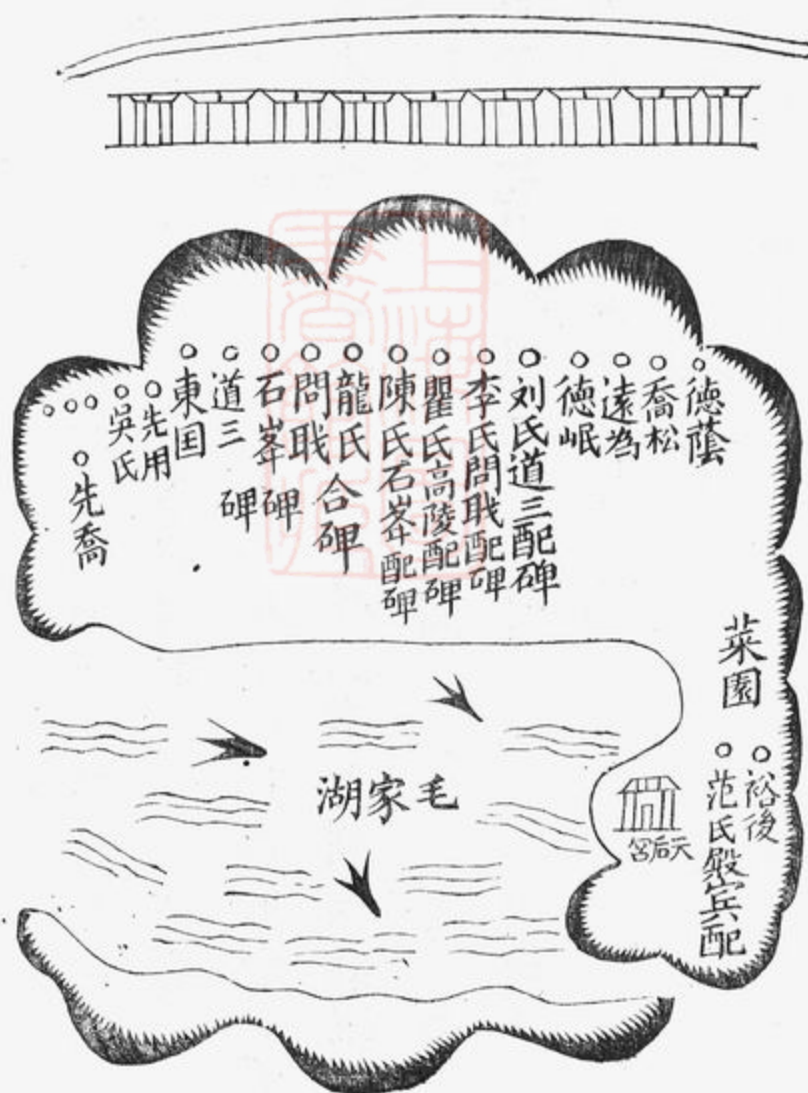 德蔭
喬松
遠為
德岷
刘氏道三配碑
李氏問耿配碑
瞿氏高陵配碑
陳氏石峯配碑
龍氏
問耿 合碑
石峯 碑
道三 碑
東囯
先用
吳氏
先喬
菜園
裕後
范氏殿賓配
天后宮
毛家湖